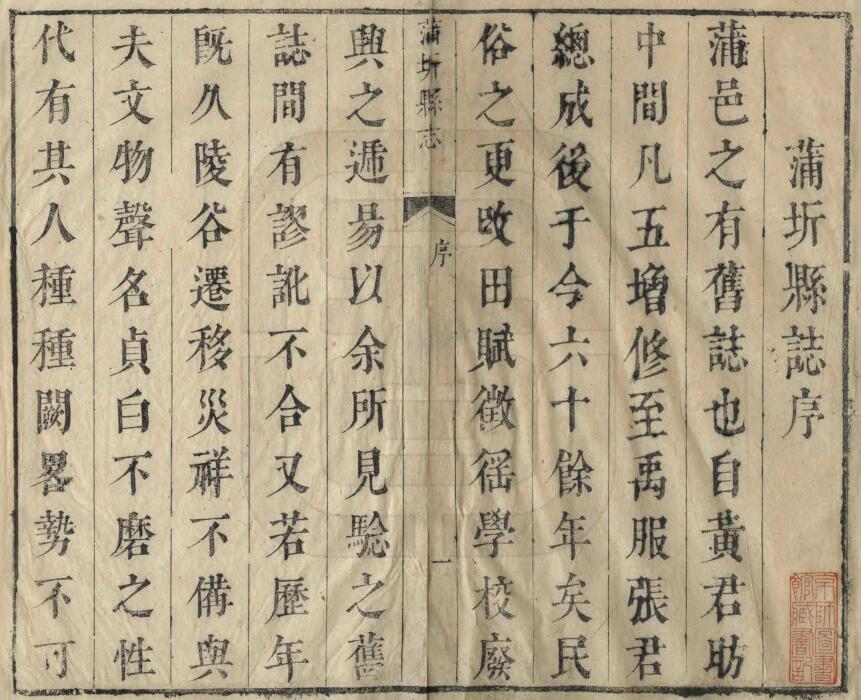 蒲圻縣誌序
蒲邑之有舊誌也自黃君昉
中間凡五增修至禹服張君
總成後于今六十餘年矣民
俗之更改田賦徵徭學校廢
蒲圻縣志
序
一
興之遞易以余所見驗之舊
誌間有謬訛不合又若歷年
既久陵谷遷移災祥不備與
夫文物聲名貞白不磨之性
代有其人種種闕畧勢不可